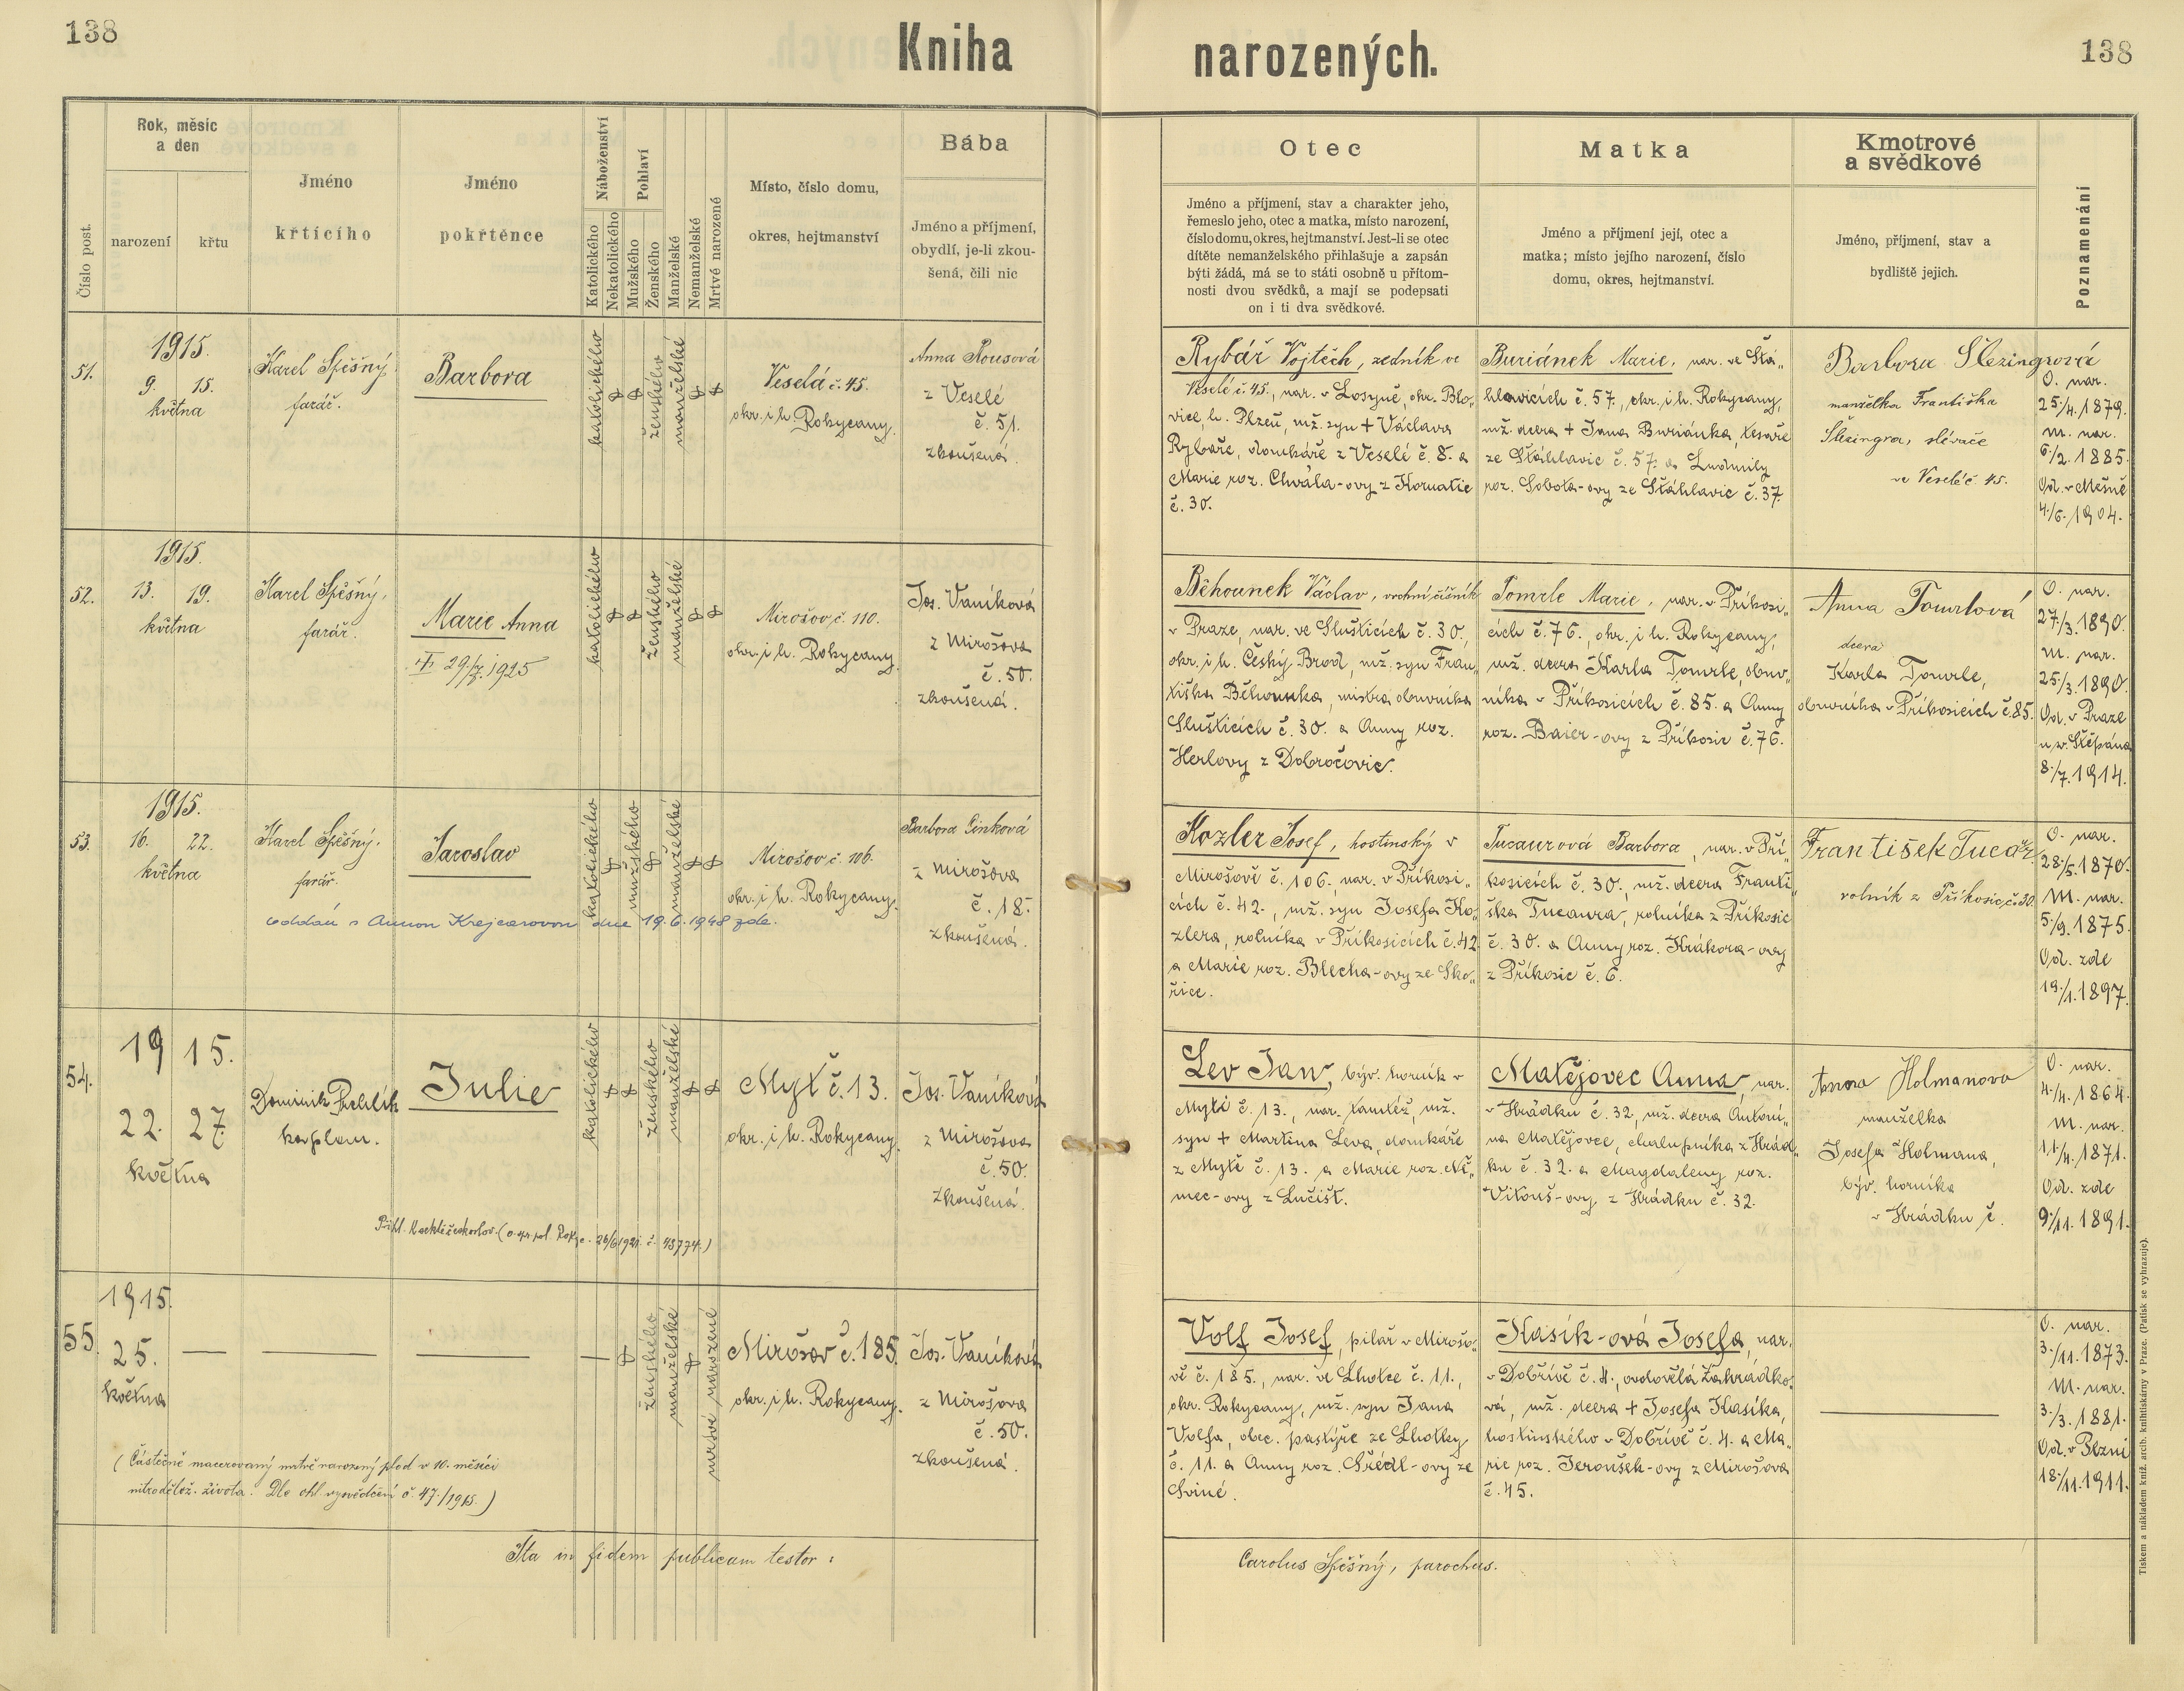 138
Kniha
narozených.
138
Číslo post.
Rok, měsíc
a den
narození
křtu
Jméno
křtícího
Jméno
pokřtěnce
Náboženství
Katolického
Nekatolického
Pohlaví
Mužského
Ženského
Manželské
Nemanželské
Mrtvé narozené
Místo, číslo domu,
okres, hejtmanství
Bába
Jméno a příjmení,
obydlí, je-li zkou-
šená, čili nic
Otec
Jméno a příjmení, stav a charakter jeho,
řemeslo jeho, otec a matka, místo narození,
číslo domu, okres, hejtmanství. Jest-li se otec
dítěte nemanželského přihlašuje a zapsán
býti žádá, má se to státi osobně u přítom-
nosti dvou svědků, a mají se podepsati
on i ti dva svědkové.
Matka
Jméno a příjmení její, otec a
matka; místo jejího narození, číslo
domu, okres, hejtmanství.
Kmotrové
a svědkové
Jméno, příjmení, stav a
bydliště jejich.
Poznamenání
51.
1915.
9. 15.
května
Karel Spěšný,
farář.
Barbora
katolického
ženského
manželské
Veselá č. 45.
okr. i h. Rokycany.
Anna Rousová
z Veselé
č. 51.
zkoušená.
Rybář Vojtěch, zedník ve
Veselé č. 45., nar. v Losyně, okr. Blo„
vice, h. Plzeň, mž. syn + Václava
Rybáře, domkáře z Veselé č. 8. a
Marie roz. Chvála-ovy z Kornatic
č. 30.
Buriánek Marie, nar. ve Štá„
hlavicích č. 57., okr. i h. Rokycany,
mž. dcera + Jana Buriánka, tesaře
ze Štáhlavic č. 57. a Ludmily
roz. Sobota-ovy ze Štáhlavic č. 37.
Barbora Slezingrová
manželka Františka
Slezingra, slévače
ve Veselé č. 45.
O. nar.
25./4. 1879.
M. nar.
6./2. 1885.
Od. v Mešně
4./6. 1904.
52.
1915.
13. 19.
května
Karel Spěšný,
farář.
Marie Anna
29./7. 1925
katolického
ženského
manželské
Mirošov, č. 110.
okr. i h. Rokycany.
Jos. Vaníková
z Mirošova
č. 50.
zkoušená.
Běhounek Václav, vrchní číšník
v Praze, nar. ve Slušticích č. 30.,
okr. i h. Český Brod, mž. syn Fran„
tiška Běhounka, mistra obuvníka
Slušticích č. 30. a Anny roz.
Herlovy z Dobročovic.
Tomrle Marie, nar. v Příkosi„
cích č. 76., okr. i h. Rokycany,
mž. dcera Karla Tomrle, obuv„
níka v Příkosicích č. 85. a Anny
roz. Baier-ovy z Příkosic č. 76.
Anna Tomrlová
dcera
Karla Tomrle,
obuvníka v Příkosicích č. 85.
O. nar.
27./3. 1890.
M. nar.
25./3. 1890.
Od. v Praze
u sv. Štěpána
8./7. 1914.
53.
1915.
16. 22.
května
Karel Spěšný,
farář.
Jaroslav
katolického
mužského
manželské
Mirošov, č. 106.
okr. i h. Rokycany.
oddán s Annou Krejcarovou dne 19.6.1948 zde.
Barbora Cinková
z Mirošova
č. 18.
zkoušená.
Kozler Josef, hostinský v
Mirošově č. 106., nar. v Příkosi„
cích č. 42., mž. syn Josefa Ko„
zlera, rolníka v Příkosicích č. 42.
a Marie roz. Blecha-ovy ze Sko„
řice.
Tucaurová Barbora, nar. v Pří„
kosicích č. 30., mž. dcera Franti„
ška Tucaura, rolníka z Příkosic
č. 30. a Anny roz. Krákora-ovy
z Příkosic č. 6.
František Tucaur
rolník z Příkosic, č. 30.
O. nar.
28./5. 1870.
M. nar.
5./9. 1875.
Od. zde
19./1. 1897.
54.
1915.
22. 27.
května
Dominik
kaplan.
Julie
katolického
ženského
manželské
Mýť č. 13.
okr. i h. Rokycany.
Jos. Vaníková
z Mirošova
č. 50.
zkoušená.
26/6 1921. č. 43774.)
Lev Jan, býv. horník v
Mýtě č. 13., nar. tamtéž, mž.
syn + Martina Leva, domkáře
z Mýtě č. 13. a Marie roz. Ně„
mec-ovy z Lučišť.
Matějovec Anna, nar.
v Hrádku č. 32, mž. dcera Antoní„
na Matějovce, chalupníka z Hrád„
ku č. 32. a Magdaleny roz.
Vitouš-ovy z Hrádku č. 32.
Anna Holmanova
manželka
Josefa Holmana,
býv. horníka
v Hrádku č.
O. nar.
4./4. 1864.
M. nar.
11./4. 1871.
Od. zde
9./11. 1891.
55.
1915.
25.
května
ženského
manželské
mrtvě narozené
Mirošov č. 185.
okr. i h. Rokycany.
Jos. Vaníková
z Mirošova
č. 50.
zkoušená.
(Částečně macerovaný mrtvě narozený plod v 10. měsíci
nitroděložn. života. Dle ohl. vysvědčení č. 47./1915.)
Volf Josef, pilař v Mirošo„
vě č. 185., nar. ve Lhotce č. 11.,
okr. Rokycany, mž. syn Jana
Volfa, obec. pastýře ze Lhotky
č. 11. a Anny roz. Šrédl-ovy ze
Sviné.
Klasík-ová Josefa, nar.
v Dobřívě č. 4., ovdovělá Zahrádko„
vá, mž. dcera + Josefa Klasíka,
hostinského v Dobřívě č. 4. a Ma„
rie roz. Jeroušek-ovy z Mirošova
č. 45.
O. nar.
3./11. 1873.
M. nar.
3./3. 1881.
Od. v Plzni
18./11. 1911.
Ita in fidem publicam testor:
Carolus Spěšný, parochus.
Tiskem a nákladem kníž. arcib. knihtiskárny v Praze. (Patisk se vyhrazuje).